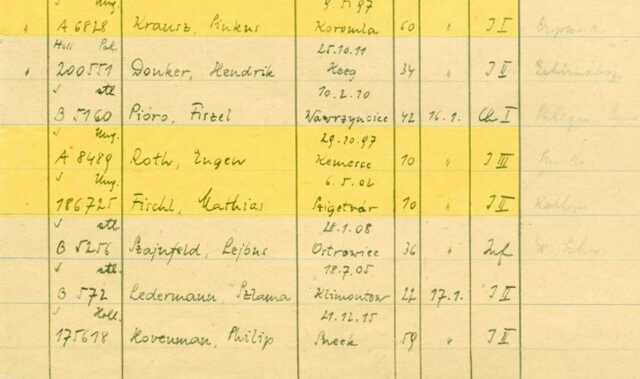 V Ung. 9.5.97
A 6828 Krausz, Pinkus Koromla 60 " I I
Holl Pol. 25.10.11
200551 Donker, Hendrik Heeg 34 " I II
V stl 10.2.10
B 5160 Pióro, Fiszel Wawrzyncice 42 16.1. Ch I
V Ung. 29.10.97
A 8489 Roth, Eugen Kemecse 10 " I III
V Ung. 6.5.02
186725 Fischl, Mathias Szigetvár 10 " I II
V stl 28.1.08
B 5256 Szajnfeld, Lejbus Ostrowiec 36 " Inf
V stl. 18.7.05
B 572 Ledermann, Szlama Klimontow 22 17.1. I II
V Holl. 21.12.15
175618 Hovenman, Philip Sneek 59 " I II